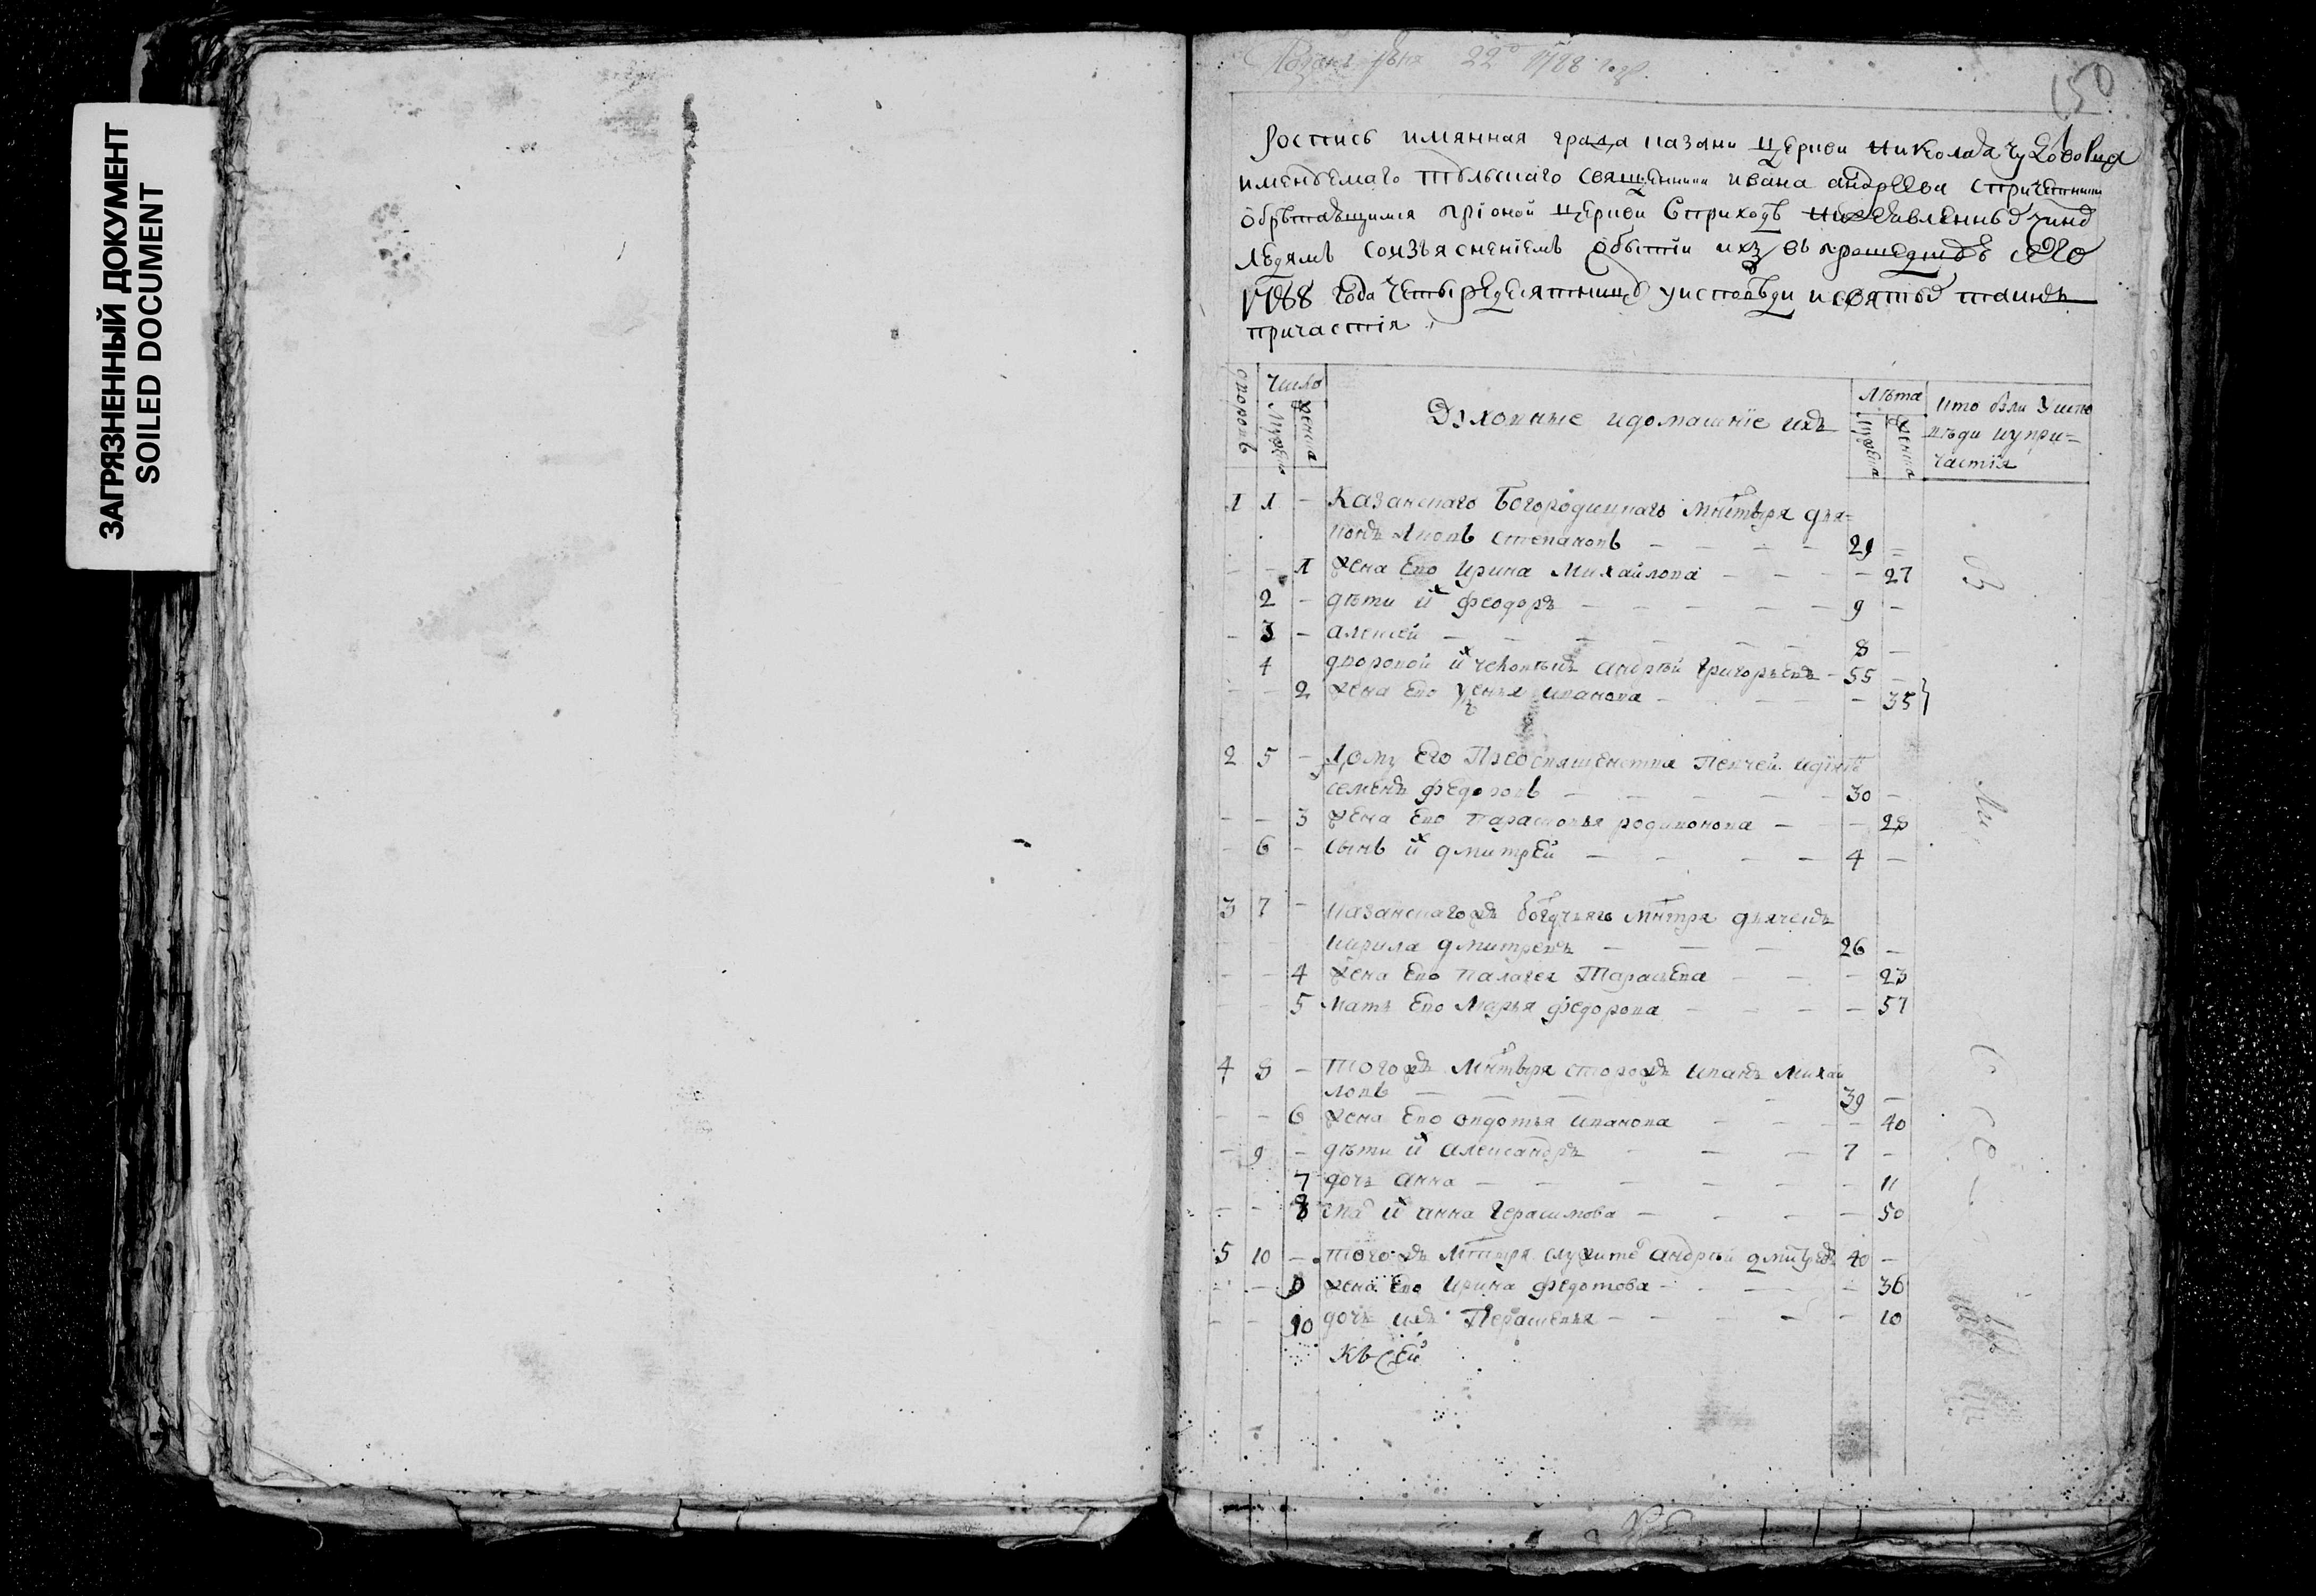 ЗАГРЯЗНЕННЫЙ ДОКУМЕНТ
SOILED DOCUMENT
22го 1788 года
150
Роспись имянная града казани церкви николая чудотворца
имендемаго тдльскаго священника ивана андреева спричетники
обрѣтающимися при оной церкви Сприходѣ
людямъ соизъяснениемъ о бытии ихъ въ прошедшдю сего
1788 года четыредесятницд уисповѣди исвятыд таинъ
причастія
дворовъ
Число
мужеска
женска
Духовные идомашніе ихъ
Лѣта
мужеска
женска
кто были Уиспо
вѣди иупри=
частія
1 1 – Казанскаго Богородицкаго Мнстыря дья=
конъ Яковъ степановъ – 29 –
– – 1 жена Ево Ирина Михайлова – – 27
2 – дѣти их феодоръ – 9 –
– 3 – алексей – 8 –
4 дворовой их человѣкъ андрѣй григорьевъ – 55 –
– – 2 жена Ево иванова – – 35
2 5 – Дому Его Преосвященства Певчей
семенъ федоровъ – 30 –
– – 3 жена Ево парасковья родионова – – 28
– 6 – сынъ их дмитрей – 4 –
3 7 – казанскагожъ богдцкаго мнстря дьячекъ
кирила дмитревъ – 26 –
– – 4 жена Ево палагея Тарасева – – 23
– – 5 мать Ево Марья федорова – – 57
4 8 – тогожъ Мнстыря сторожъ иванъ михай
ловъ – 39 –
– – 6 жена Ево овдотья иванова – – 40
– 9 – дѣти их александръ – 7 –
7 дочь анна – – 11
– – 8 их анна герасимова – – 50
5 10 – тогожъ Мнстря служите андрѣй дмитревъ 40 –
– – 9 жена Ево Ирина федотова – – 36
– – 10 дочь ихъ – – 10